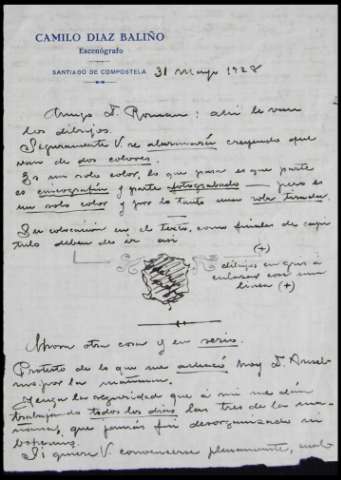 CAMILO DIAZ BALIÑO
Escenógrafo
SANTIAGO DE COMPOSTELA
31 Mayo 1928
Amigo D. Roman: ahi le van
los dibujos.
Seguramente V. se alarmará creyendo que
van de dos colores.
Es un solo color, lo que pasa es que parte
es cincografía y parte fotograbado — pero es
un solo color y por lo tanto una sola tirada.
Su colocación en el texto, como finales de capi
tulo deben de ir asi
(+)
dibujos en gris á
enlazar con una
linea (+)
Ahora otra cosa y en serio.
Protesto de lo que me hoy D. Ansel
mo por la mañana.
Tenga la seguridad que á mi me dán
trabajando todos los dias las tres de la ma
ñana, que jamás fui desorganizado ni
bohemio.
Si quiere V. convencerse plenamente,